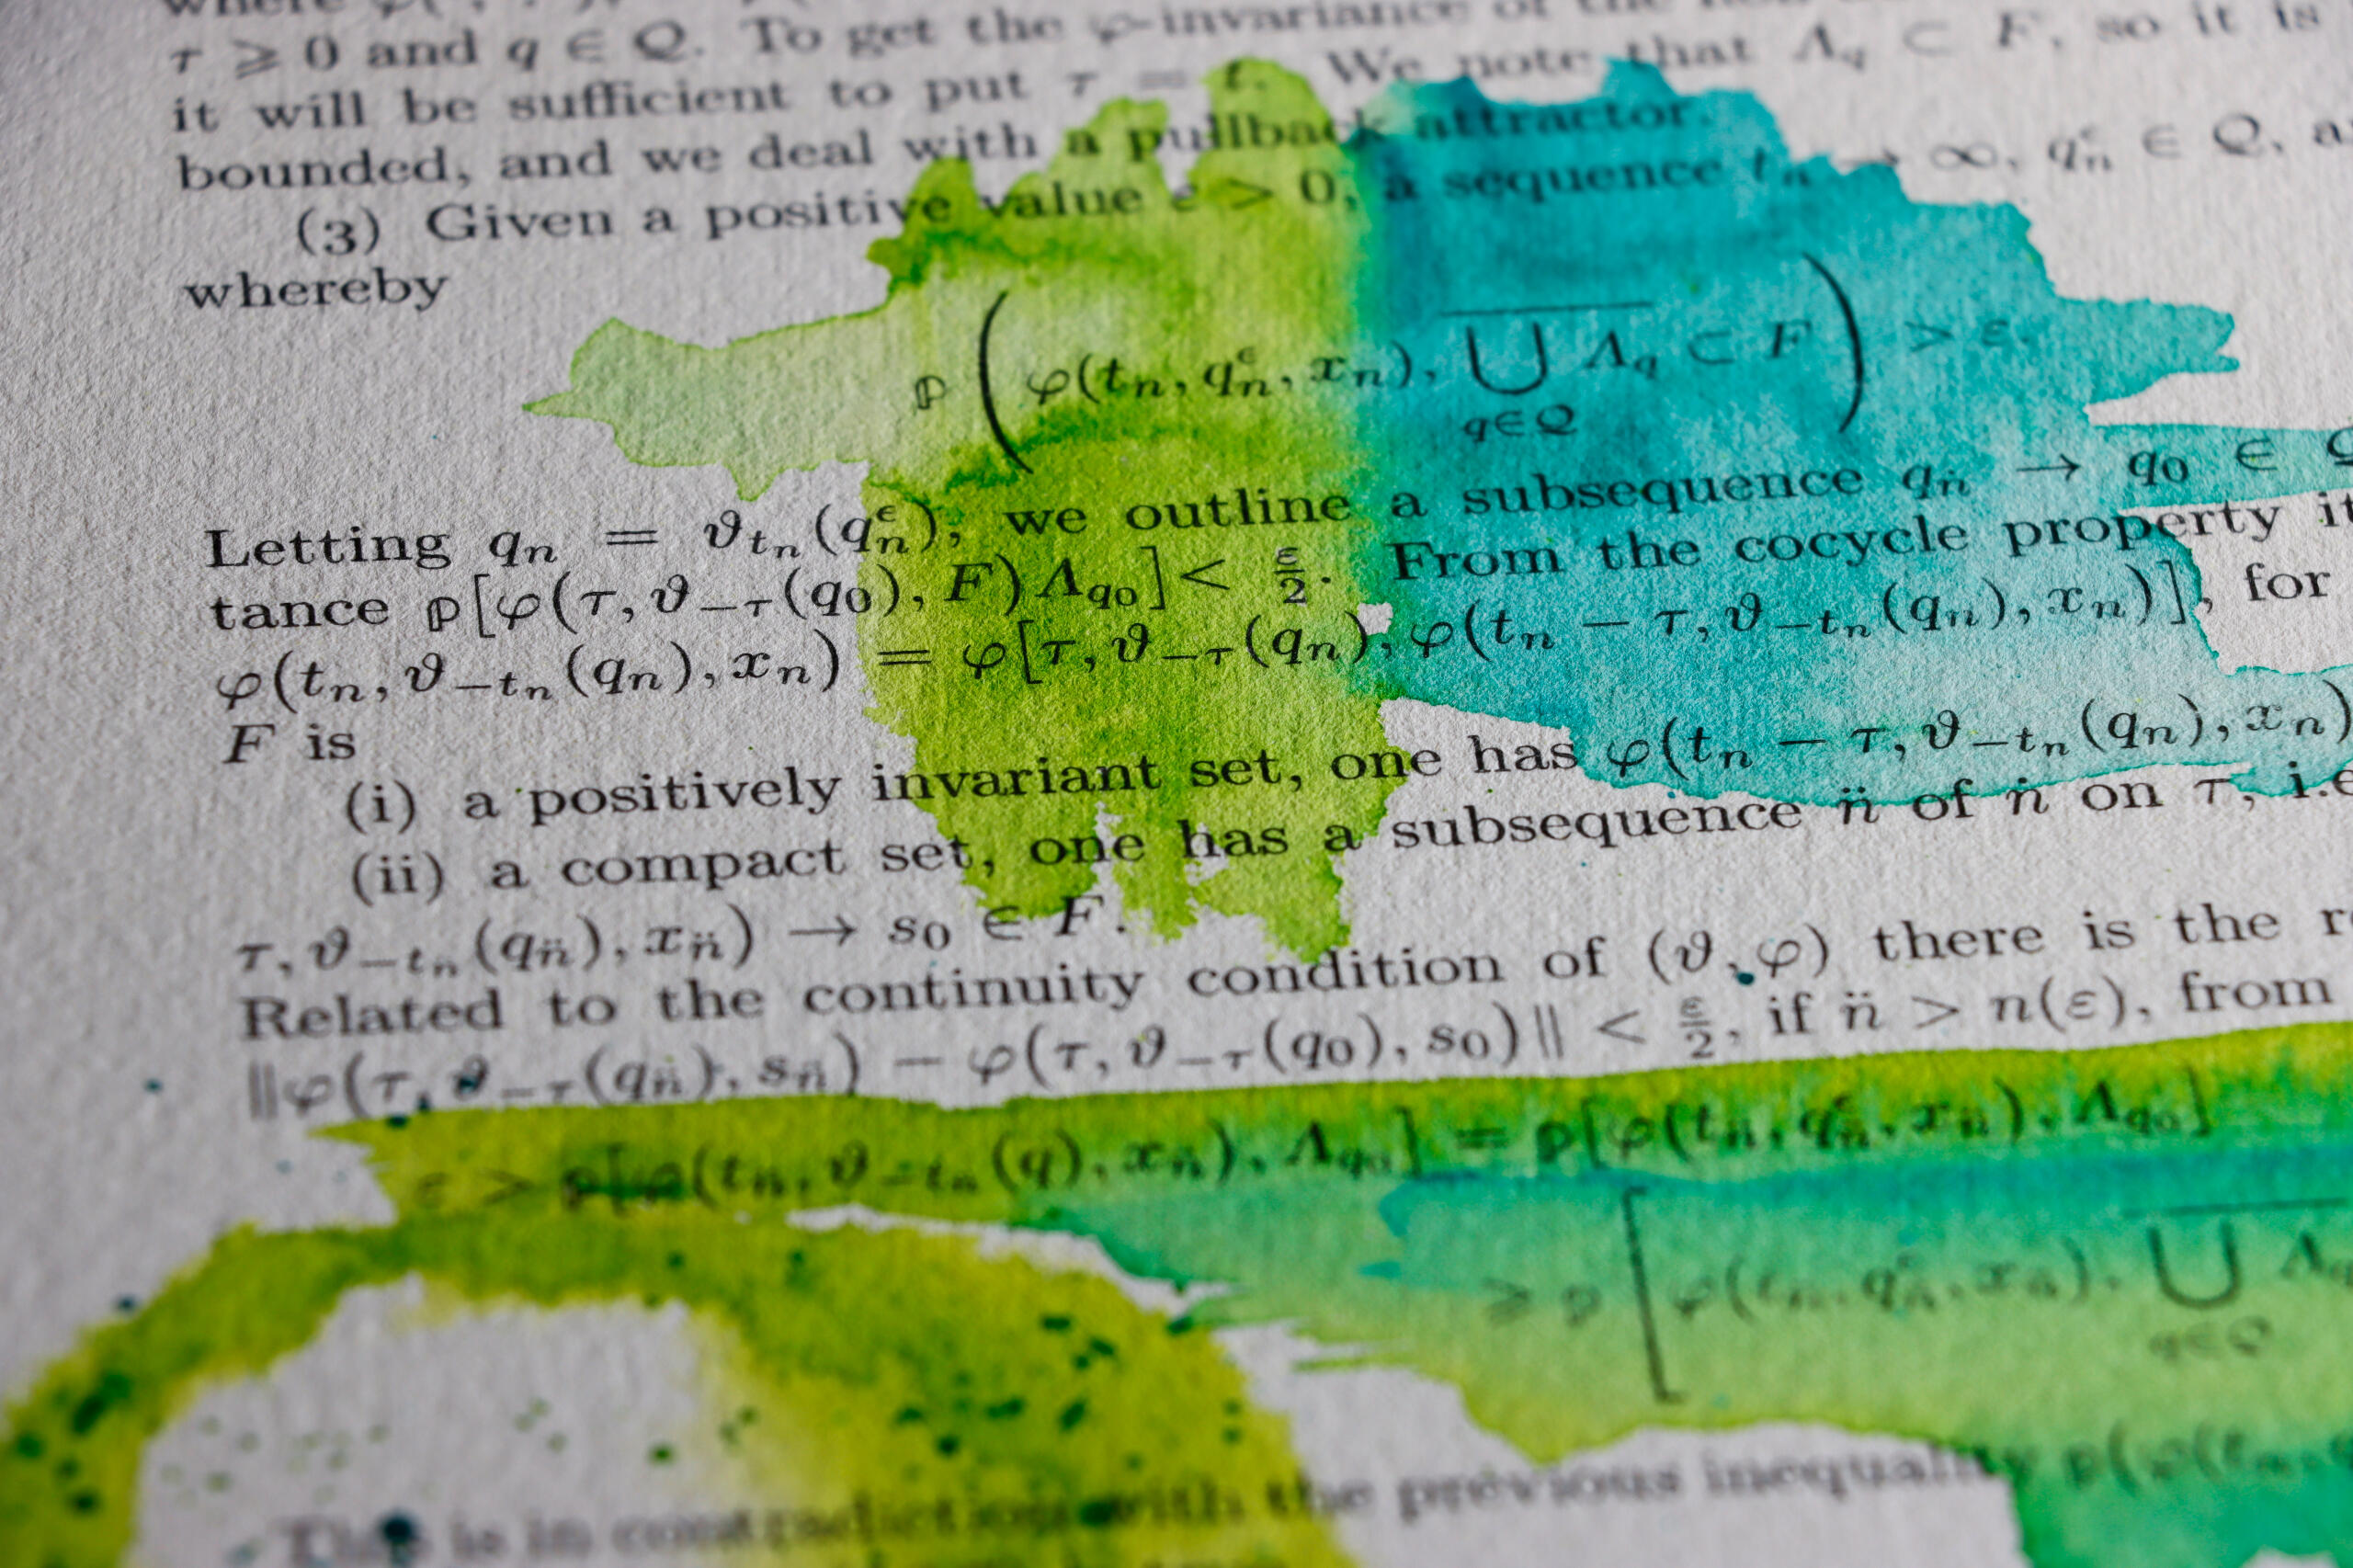 where φ(
τ ⩾ 0 and q ∈ Q. To get the φ-invariance of the
it will be sufficient to put τ = t. We note that Λ_q ⊂ F, so it is
bounded, and we deal with a pullback attractor.
(3) Given a positive value ε > 0, a sequence t_n → ∞, q_n^ϵ ∈ Q, a
whereby
ℙ ( φ(t_n, q_n^ϵ, x_n), \overline{⋃_{q∈Q} Λ_q} ⊂ F ) > ε.
Letting q_n = ϑ_{t_n}(q_n^ϵ), we outline a subsequence q_ṅ → q_0 ∈
tance ℙ[φ(τ, ϑ_{−τ}(q_0), F) Λ_{q_0}] < ε/2. From the cocycle property it
φ(t_n, ϑ_{−t_n}(q_n), x_n) = φ[τ, ϑ_{−τ}(q_n), φ(t_n − τ, ϑ_{−t_n}(q_n), x_n)], for
F is
(i) a positively invariant set, one has φ(t_n − τ, ϑ_{−t_n}(q_n), x_n)
(ii) a compact set, one has a subsequence n̈ of ṅ on τ, i.e
τ, ϑ_{−t_n}(q_n̈), x_n̈) → s_0 ∈ F.
Related to the continuity condition of (ϑ, φ) there is the r
‖φ(τ, ϑ_{−τ}(q_n̈), s_n̈) − φ(τ, ϑ_{−τ}(q_0), s_0)‖ < ε/2, if n̈ > n(ε), from
ε > ℙ[φ(t_n̈, ϑ_{−t_n}(q), x_n̈), Λ_{q_0}] = ℙ[φ(t_n̈, q_n̈^ϵ, x_n̈), Λ_{q_0}]
⩾ ℙ [ φ(t_n̈, q_n̈^ϵ, x_n̈), \overline{⋃_{q∈Q} Λ_q
This is in contradiction with the previous inequality ℙ(φ(t_n